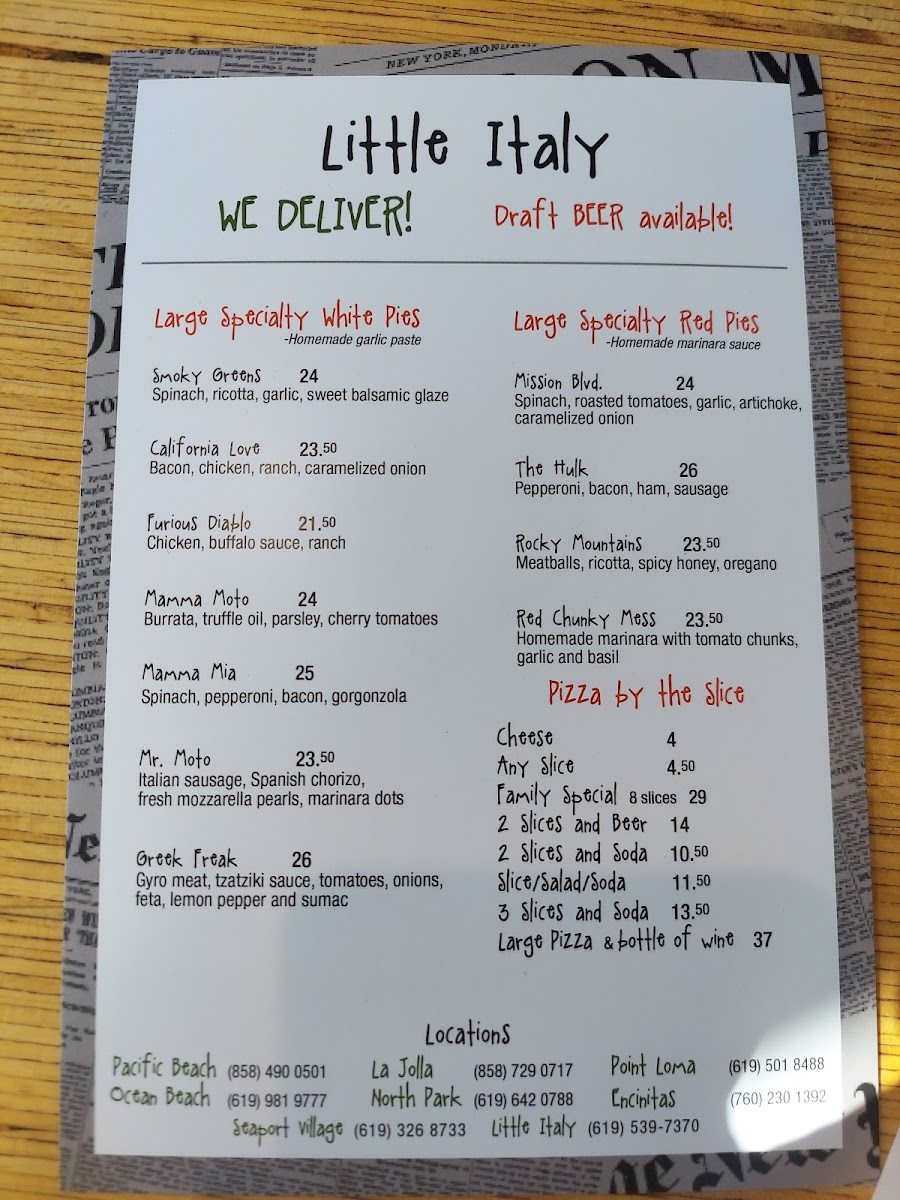 NEW YORK, MOND
Little Italy
WE DELIVER!
Draft BEER available!
Large Specialty White Pies
-Homemade garlic paste
Smoky Greens 24
Spinach, ricotta, garlic, sweet balsamic glaze
California Love 23.50
Bacon, chicken, ranch, caramelized onion
Furious Diablo 21.50
Chicken, buffalo sauce, ranch
Mamma Moto 24
Burrata, truffle oil, parsley, cherry tomatoes
Mamma Mia 25
Spinach, pepperoni, bacon, gorgonzola
Mr. Moto 23.50
Italian sausage, Spanish chorizo,
fresh mozzarella pearls, marinara dots
Greek Freak 26
Gyro meat, tzatziki sauce, tomatoes, onions,
feta, lemon pepper and sumac
Large Specialty Red Pies
-Homemade marinara sauce
Mission Blvd. 24
Spinach, roasted tomatoes, garlic, artichoke,
caramelized onion
The Hulk 26
Pepperoni, bacon, ham, sausage
Rocky Mountains 23.50
Meatballs, ricotta, spicy honey, oregano
Red Chunky Mess 23.50
Homemade marinara with tomato chunks,
garlic and basil
Pizza by the Slice
Cheese 4
Any Slice 4.50
Family Special 8 slices 29
2 Slices and Beer 14
2 Slices and Soda 10.50
Slice/Salad/Soda 11.50
3 Slices and Soda 13.50
Large Pizza & bottle of wine 37
Locations
Pacific Beach (858) 490 0501 La Jolla (858) 729 0717 Point Loma (619) 501 8488
Ocean Beach (619) 981 9777 North Park (619) 642 0788 Encinitas (760) 230 1392
Seaport Village (619) 326 8733 Little Italy (619) 539-7370